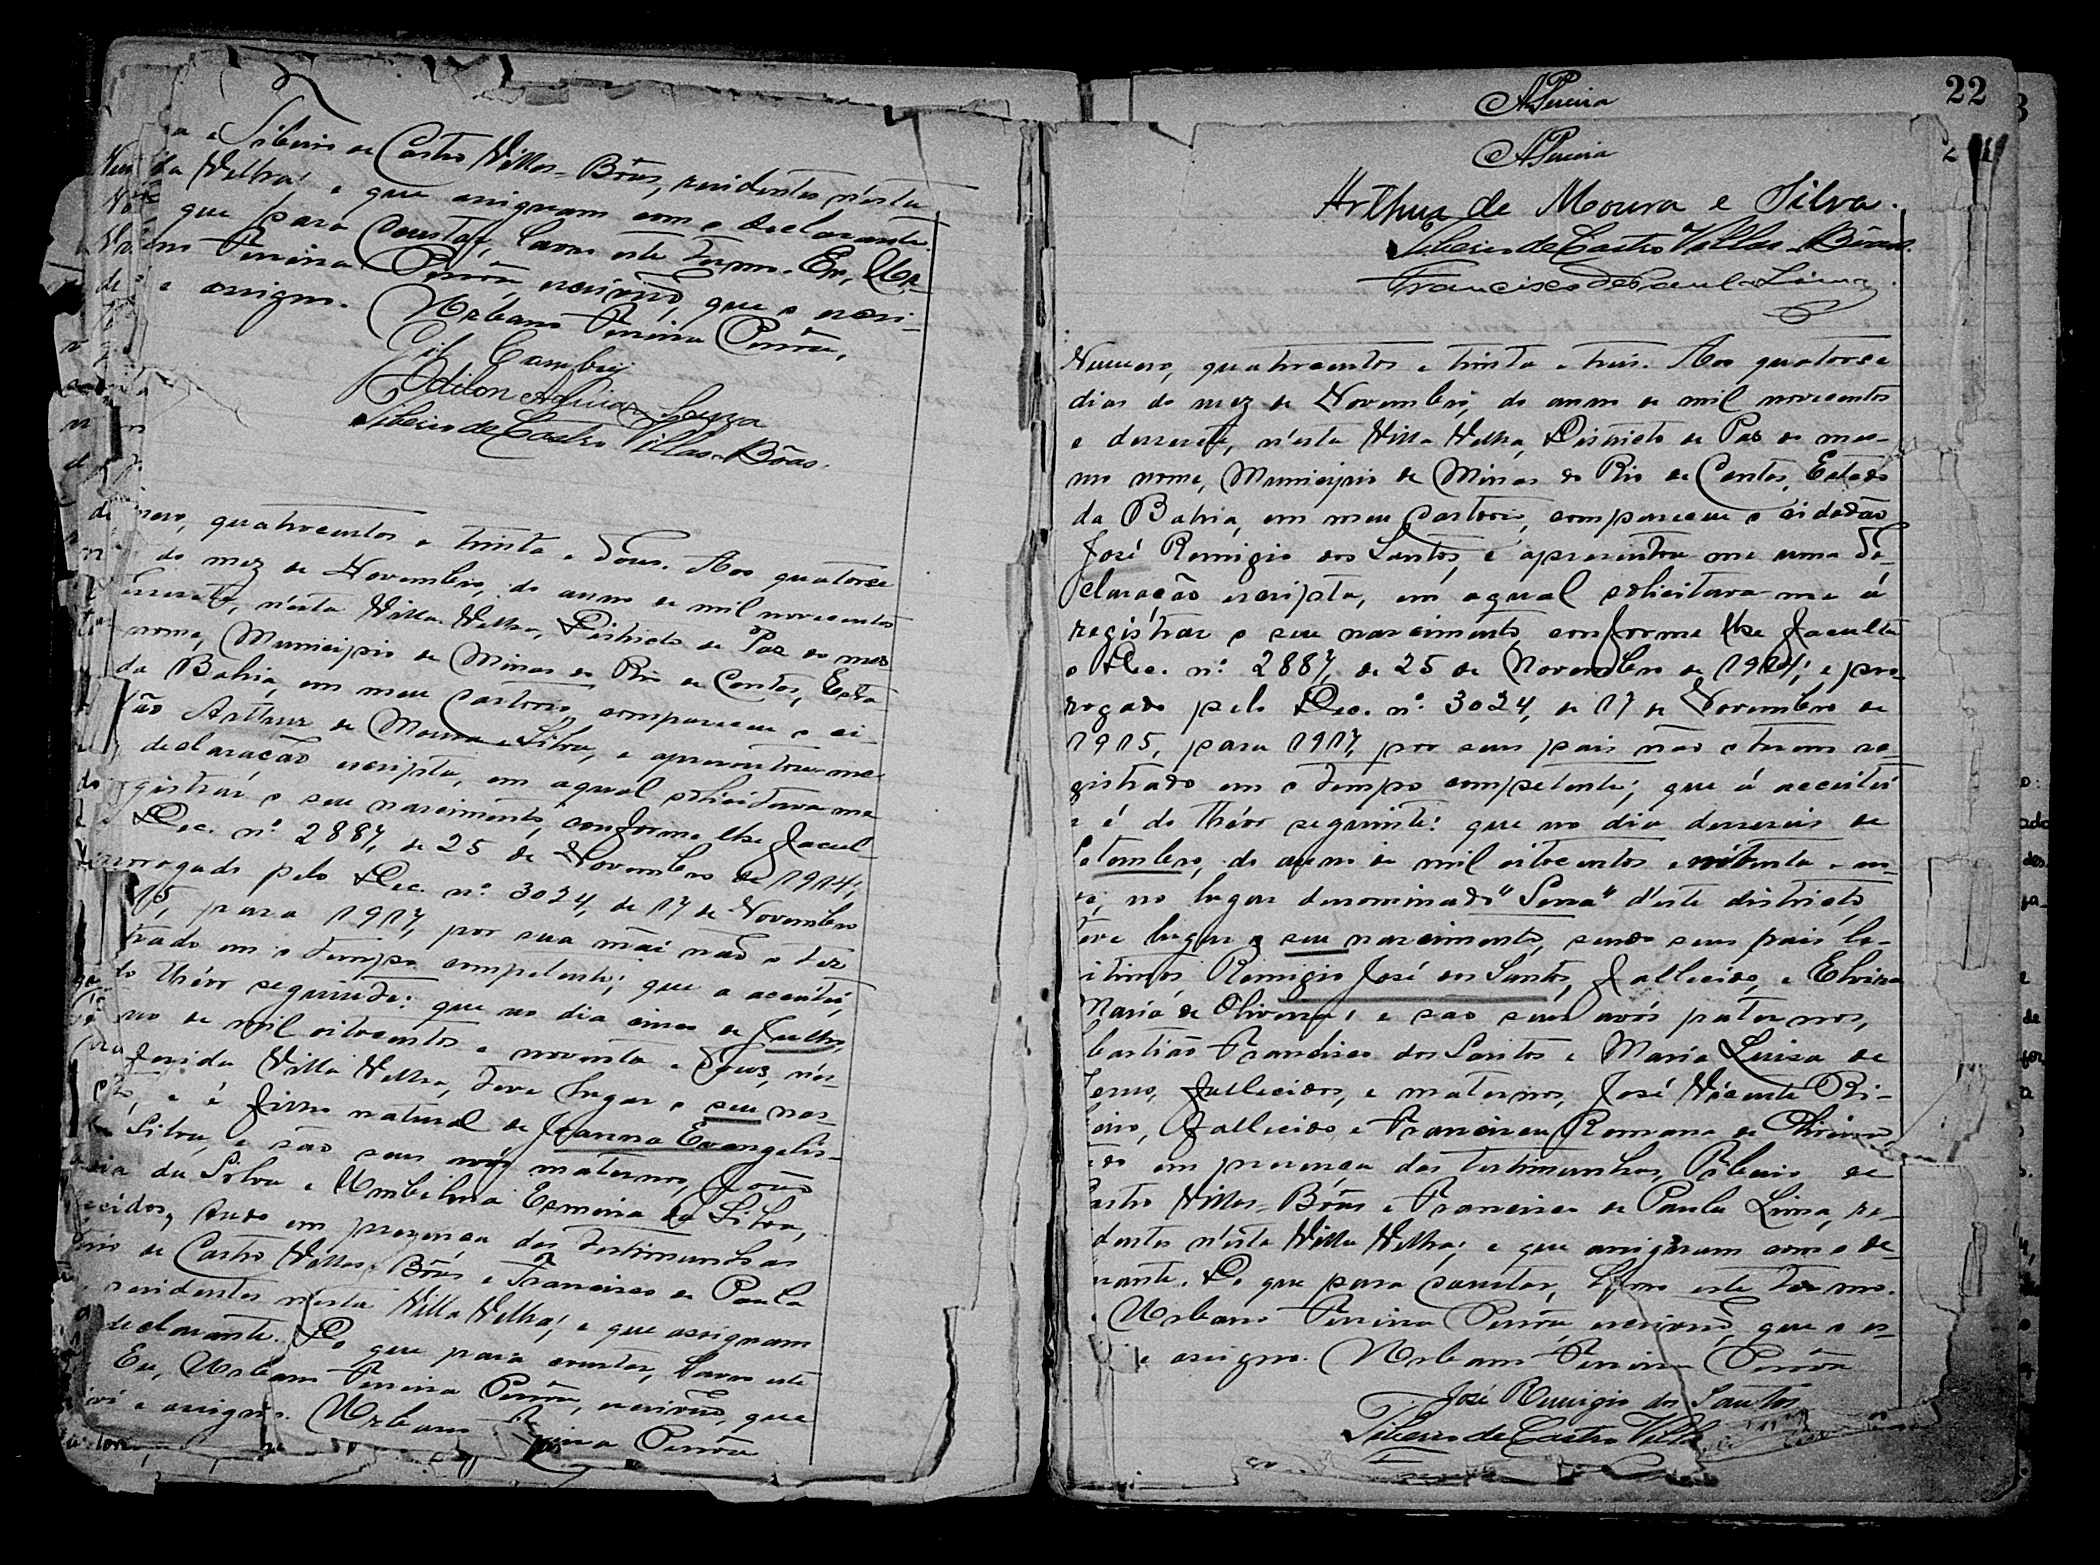 a e Tiberio de Castro Villas-Bôas, residentes n'esta
Villa Velha; e que assignam com o declarante.
que para constar, lavro este termo. Eu, Ur-
bano Pereira Perrôa, escrivão, que o escri-
e assigno. Urbano Pereira Perrôa,
Gil Camby
Odilon Souza
Tiberio de Castro Villas-Bôas.
mero, quatrocentos e trinta e dous. Aos quatorze
do mez de Novembro, do anno de mil novecentos
esesete, n'esta Villa Velha, Districto de Paz do mes
nome, Municipio de Minas do Rio de Contas, Esta
da Bahia, em meu Cartorio, compareceu o ci-
ão Arthur de Moura e Silva, e apresentou-me
declaração escripta, em a qual solicitava me
gistrar o seu nascimento, conforme lhe facul-
Dec. nº 2887, de 25 de Novembro de 1914;
prorogado pelo Dec. nº 3024, de 17 de Novembro
15, para 1917, por sua mãi não o ter
trado em o tempo competente; que a acceitei,
do théor seguinte: que no dia cinco de Julho,
no de mil oitocentos e noventa e dous, n'es-
ferida Villa Velha, teve lugar o seu nas-
to, e é filho natural de Joanna Evangelis-
Silva, e são seus avós maternos, João
da Silva e Umbelina Ermina da Silva,
ecidos, tudo em presença das testimunhas
rio de Castro Villas-Bôas e Francisco de Paula
residentes n'esta Villa Velha; e que assignam
declarante. Do que para constar, lavro este
Eu, Urbano Pereira Perrôa, escrivão, que
vi e assigno. Urbano Pereira Perrôa
22
APereira
APereira
Arthur de Moura e Silva.
Tiberio de Castro Villas-Bôas.
Francisco de Paula Lima
Numero, quatrocentos e trinta e tres. Aos quatorze
dias do mez de Novembro, do anno de mil novecentos
e desesete, n'esta Villa Velha, Districto de Paz do mes-
mo nome, Municipio de Minas do Rio de Contas, Estado
da Bahia, em meu Cartorio, compareceu o cidadão
José Remigio dos Santos, e apresentou-me uma de-
claração escripta, em a qual solicitava-me á
registrar o seu nascimento, conforme lhe faculta
o Dec. nº 2887, de 25 de Novembro de 1914; e pro-
rogado pelo Dec. nº 3024, de 17 de Novembro de
1915, para 1917, por seus pais não o terem re-
gistrado em o tempo competente; que á acceitei
e é do théor seguinte: que no dia deseseis de
Setembro, do anno de mil oitocentos e oitenta e
no lugar denominado "Serra" d'este districto,
teve lugar o seu nascimento, sendo seus pais le-
itimos, Remigio José dos Santos, fallecido, e Elvira
Maria de Oliveira; e são seus avós paternos,
bastião Francisco dos Santos e Maria Luiza de
Jesus, fallecidos, e maternos, José Vicente Ri-
beiro, fallecido e Francisca Romana de Oliveira
do em presença das testimunhas, Tiberio de
astro Villas-Bôas e Francisco de Paula Lima, re-
dentes n'esta Villa Velha; e que assignam com o de-
rante. Do que para constar, lavro este termo.
Urbano Pereira Perrôa, escrivão, que o es-
e assigno. Urbano Pereira Perrôa
José Remigio dos Santos
Tiberio de Castro Villas